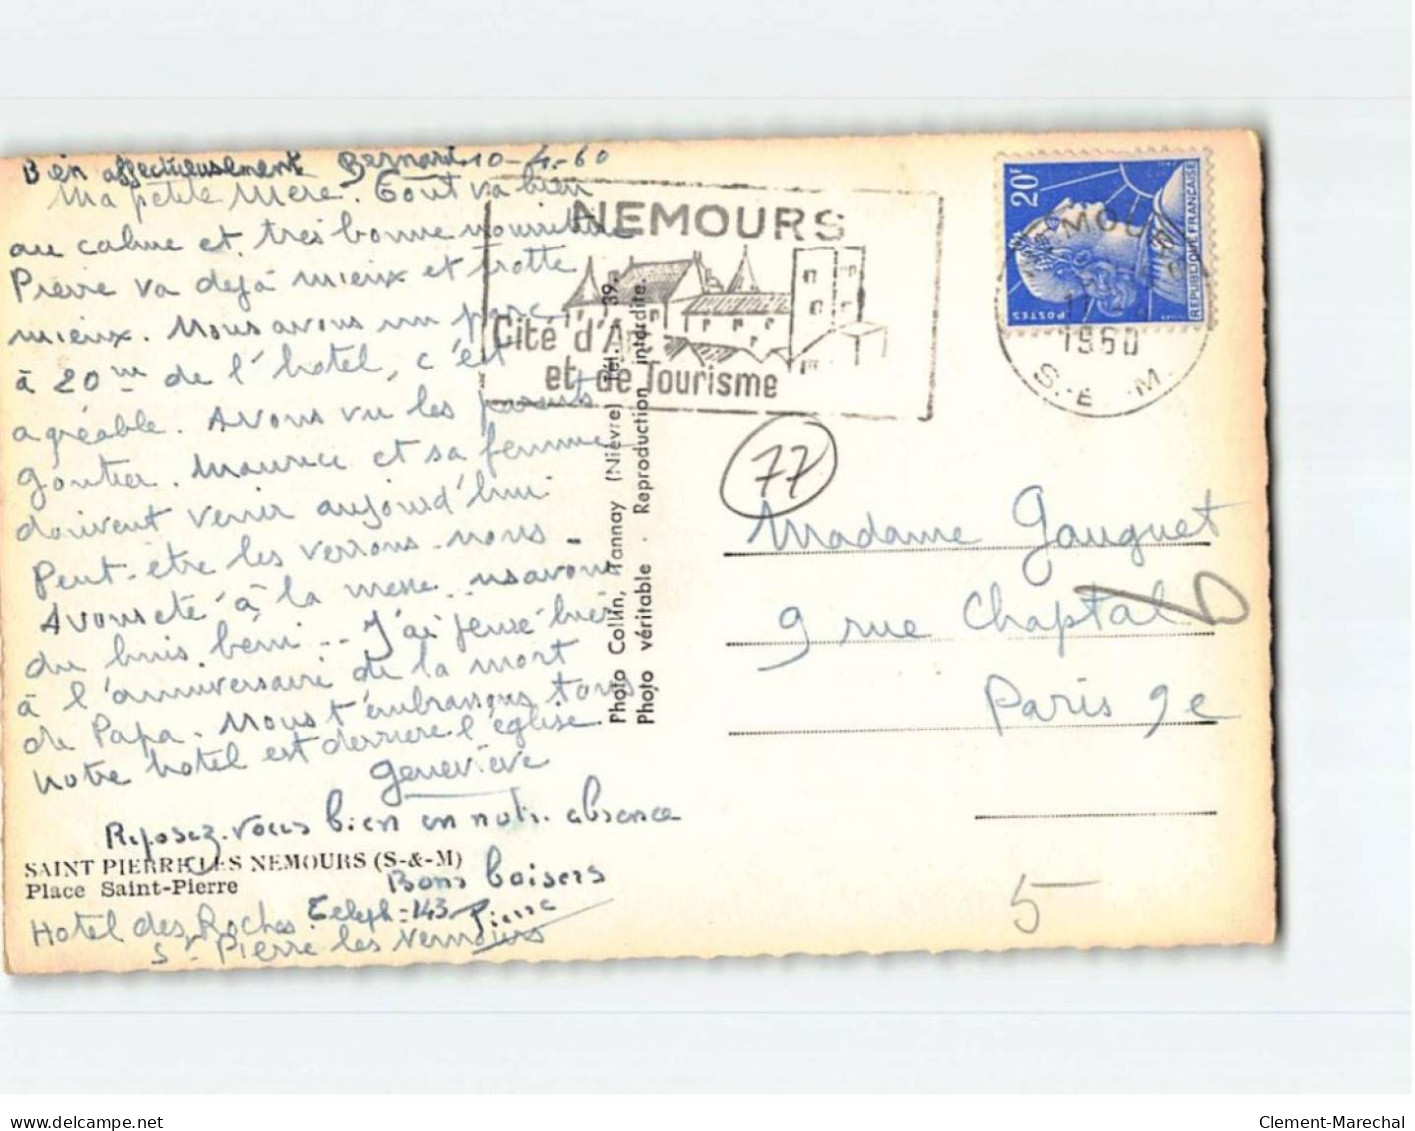 Bien affectueusement Bernard 10-4-60
Ma petite Mère. Tout va bien
au calme et très bonne nourriture
Pierre va déjà mieux et trotte
mieux. Nous avons un parc
à 20m de l'hotel, c'est
agréable. Avons vu les parents
Gontier. Maurice et sa femme
doivent venir aujourd'hui
Peut-etre les verrons-nous-
Avons été à la messe
du buis beni -- J'ai pensé hier
à l'anniversaire de la mort
de Papa. Nous t'embrassons tous
Notre hotel est derriere l'église
Geneviève
Reposez-vous bien en notre absence
SAINT PIERRE LES NEMOURS (S-&-M)
Place Saint-Pierre
Bons baisers
Pierre
Hotel des Roches Teleph-143
St Pierre les Nemours
Photo Collin, Tannay (Nièvre) Tél. 39.
Photo véritable - Reproduction interdite.
NEMOURS
Cité d'Art
et de Tourisme
20F
POSTES
REPUBLIQUE FRANÇAISE
NEMOURS
1960
S.-E.-M.
77
Madame Gauguet
9 rue Chaptal
Paris 9e
5
delcampe.net
Clement-Marechal